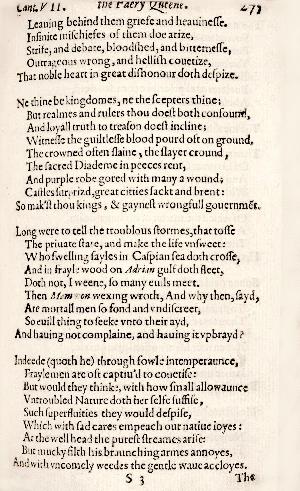 Cant. VII. the Faery Queene. 273
Leauing behind them griefe and heauinesse.
Infinite mischiefes of them doe arize,
Strife, and debate, bloodshed, and bitternesse,
Outrageous wrong, and hellish couetize,
That noble heart in great dishonour doth despize.
Ne thine be kingdomes, ne the scepters thine;
But realmes and rulers thou doest both confound,
And loyall truth to treason doest incline;
Witnesse the guiltlesse blood pourd oft on ground,
The crowned often slaine, the slayer cround,
The sacred Diademe in peeces rent,
And purple robe gored with many a wound;
Castles surprizd, great cities sackt and brent:
So mak'st thou kings, & gaynest wrongfull gouernmēt.
Long were to tell the troublous stormes, that tosse
The priuate state, and make the life vnsweet:
Who swelling sayles in Caspian sea doth crosse,
And in frayle wood on Adrian gulf doth fleet,
Doth not, I weene, so many euils meet.
Then Mammon wexing wroth, And why then, sayd,
Are mortall men so fond and vndiscreet,
So euill thing to seeke vnto their ayd,
And hauing not complaine, and hauing it vpbrayd?
Indeede (quoth he) through fowle intemperaunce,
Frayle men are oft captiu'd to couetise:
But would they thinke, with how small allowaunce
Vntroubled Nature doth her selfe suffise,
Such superfluities they would despise,
Which with sad cares empeach our natiue ioyes:
At the well head the purest streames arise:
But mucky filth his braunching armes annoyes,
And with vncomely weedes the gentle waue accloyes.
S 3 The